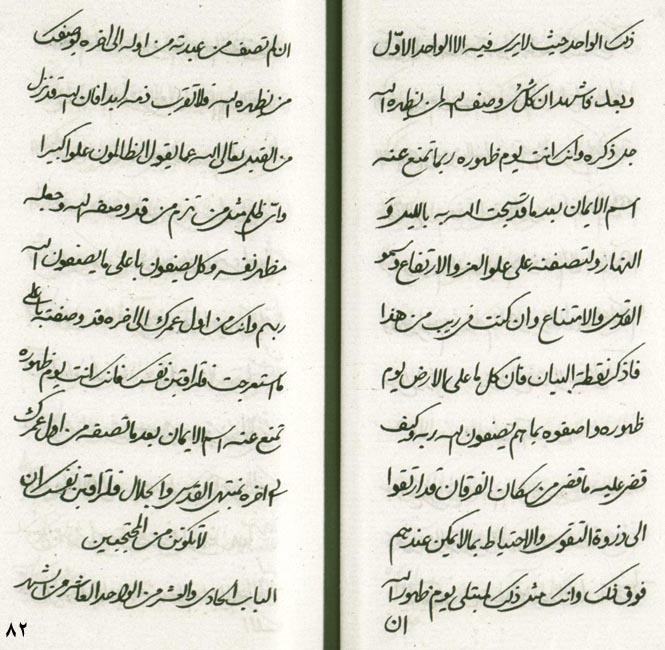 ذلك الواحد حيث لا يرى فيه الا الواحد الاوّل
وبعد فاشهد ان كلّ وصف لله لمن يظهره الله
جل ذكره وانك انت يوم ظهوره ربما تمنع عنه
اسم الايمان بعد ما قد سبحت الله ربه بالليل و
النهار ولتصفنه على علو العز والارتفاع وسمو
القدس والامتناع وان كنت في ريب من هذا
فاذكر نقطة البيان فان كل ما على الارض يوم
ظهوره واصفوه بما هم يصفون الله ربه وكيف
قضى عليه ما قضى من سكان الفرقان قد ارتقوا
الى ذروة التقوى والاحتياط بما لا يمكن عندهم
فوق ذلك وانك مثل ذلك لمبتلى يوم ظهور الله
ان
ان لم تصف من عبدته من اوله الى اخره
من يظهره الله فلا تقرب ذمه ابدا فان الله قد نزل
من القبل تعالى الله عما يقول الظالمون علوا كبيرا
واي ظلم مثل من من قد وصفه الله وجعله
مظهر نفسه وكل يصفون باعلى ما يصفون الله
ربهم وانك من اول عمرك الى اخره قد وصفته باعلى
ما استعرجت فلتراقبن نفسك فانك انت يوم ظهوره
تمنع عنه اسم الايمان بعد ما تصفه من اول عمرك
الى اخره بمنتهى القدس والجلال فلتراقبن نفسك ان
لا تكونن من المحتجبين
الباب الحادي والعشر من الواحد العاشر من الشهر
۸۲